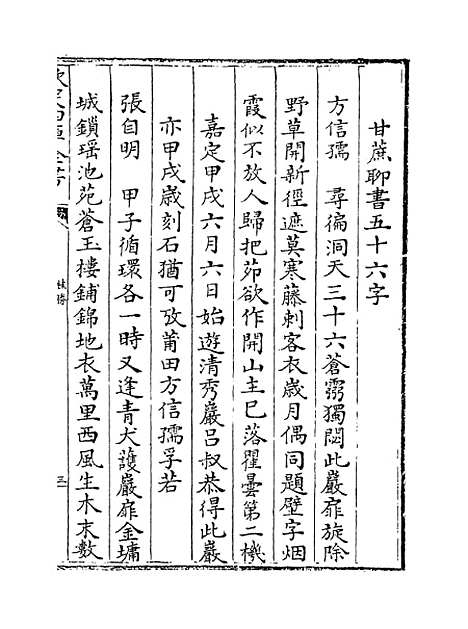 甘蔗聊書五十六字
方信孺　尋徧洞天三十六蒼霛獨閟此巖扉旋除
野草開新徑遮莫寒藤刺客衣歲月偶同題壁字烟
霞似不放人歸把茆欲作開山主已落瞿曇第二機
嘉定甲戌六月六日始遊清秀巖吕叔恭得此巖
亦甲戌歲刻石猶可攷莆田方信孺孚若
張自明　甲子循環各一時又逢青犬護巖扉金墉
城鎖瑶池苑蒼玉樓鋪錦地衣萬里西風生木末數
欽定四庫全書
三